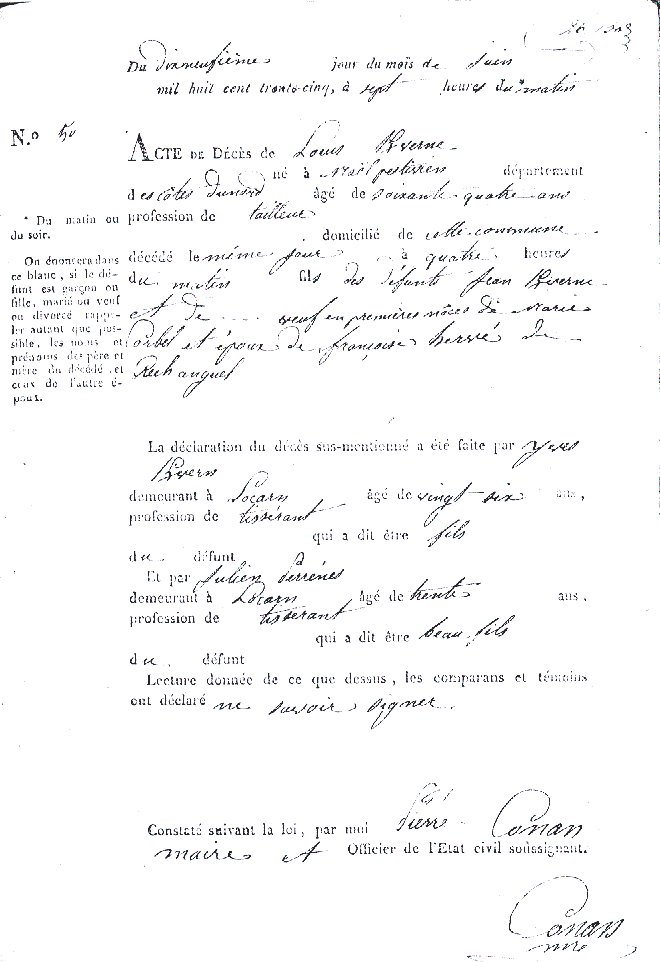 Du dixneufième jour du mois de Juin
mil huit cent trente-cinq, à sept heures du * matin
N.º 50
ACTE DE DÉCÈS de Louis Kverne
né à Mael pestivien département
des côtes Dunord âgé de soixante quatre ans
profession de tailleur
domicilié de cette commune
décédé le même jour à quatre heures
du matin fils des défunts Jean Kverne
et de veuf en premières nôces de Marie
Corbel et époux de françoise hervé de
Kerhanguel
* Du matin ou
du soir.
On énoncera dans
ce blanc, si le dé-
funt est garçon ou
fille, marié ou veuf
ou divorcé rappe-
ler autant que pos-
sible, les noms et
prénoms des père et
mère du décédé, et
ceux de l'autre é-
poux.
La déclaration du décès sus-mentionné a été faite par yves
Kvern
demeurant à Locarn âgé de vingt six ans,
profession de tisserant
qui a dit être fils
du défunt
Et par Julien Perrenes
demeurant à Locarn âgé de trente ans,
profession de tisserant
qui a dit être beau fils
du défunt
Lecture donnée de ce que dessus, les comparans et témoins
ont déclaré ne savoir signer.
Constaté suivant la loi, par moi Pierre Conan
maire et Officier de l'Etat civil soussignant.
Conan
mre